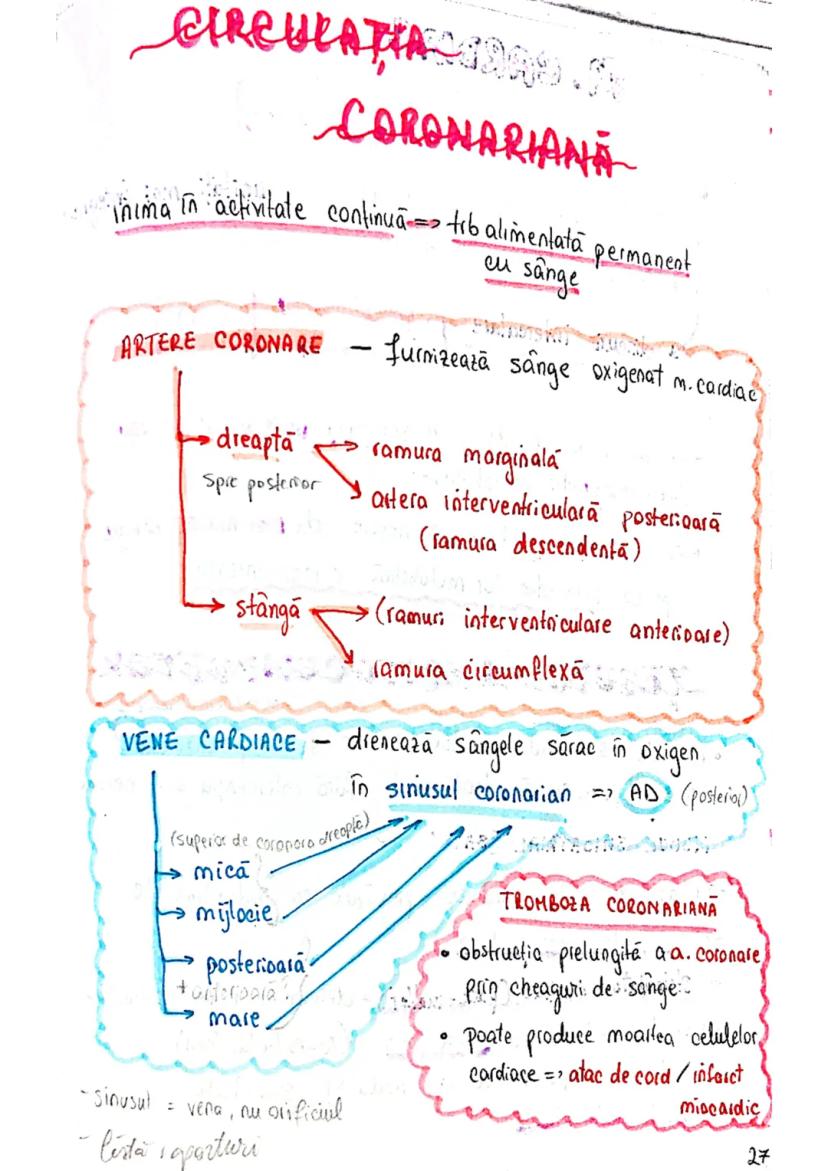 CIRCULAȚIA
CORONARIANĂ
inima în activitate continuă => trb alimentată permanent
cu sânge
ARTERE CORONARE – furnizează sânge oxigenat m. cardiac
dreaptă
ramura marginală
spre posterior
artera interventriculară posterioară
(ramura descendentă)
stângă
(ramuri interventriculare anterioare)
ramura circumflexă
VENE CARDIACE – drenează sângele sărac în oxigen
în sinusul coronarian => AD (posterior)
(superior de coronara dreaptă)
mică
mijlocie
posterioară
+ anterioară
mare
TROMBOZA CORONARIANĂ
• obstrucția prelungită a a. coronare
prin cheaguri de sânge
• poate produce moartea celulelor
cardiace => atac de cord / infarct
miocardic
- sinusul = vena, nu orificiul
-
27